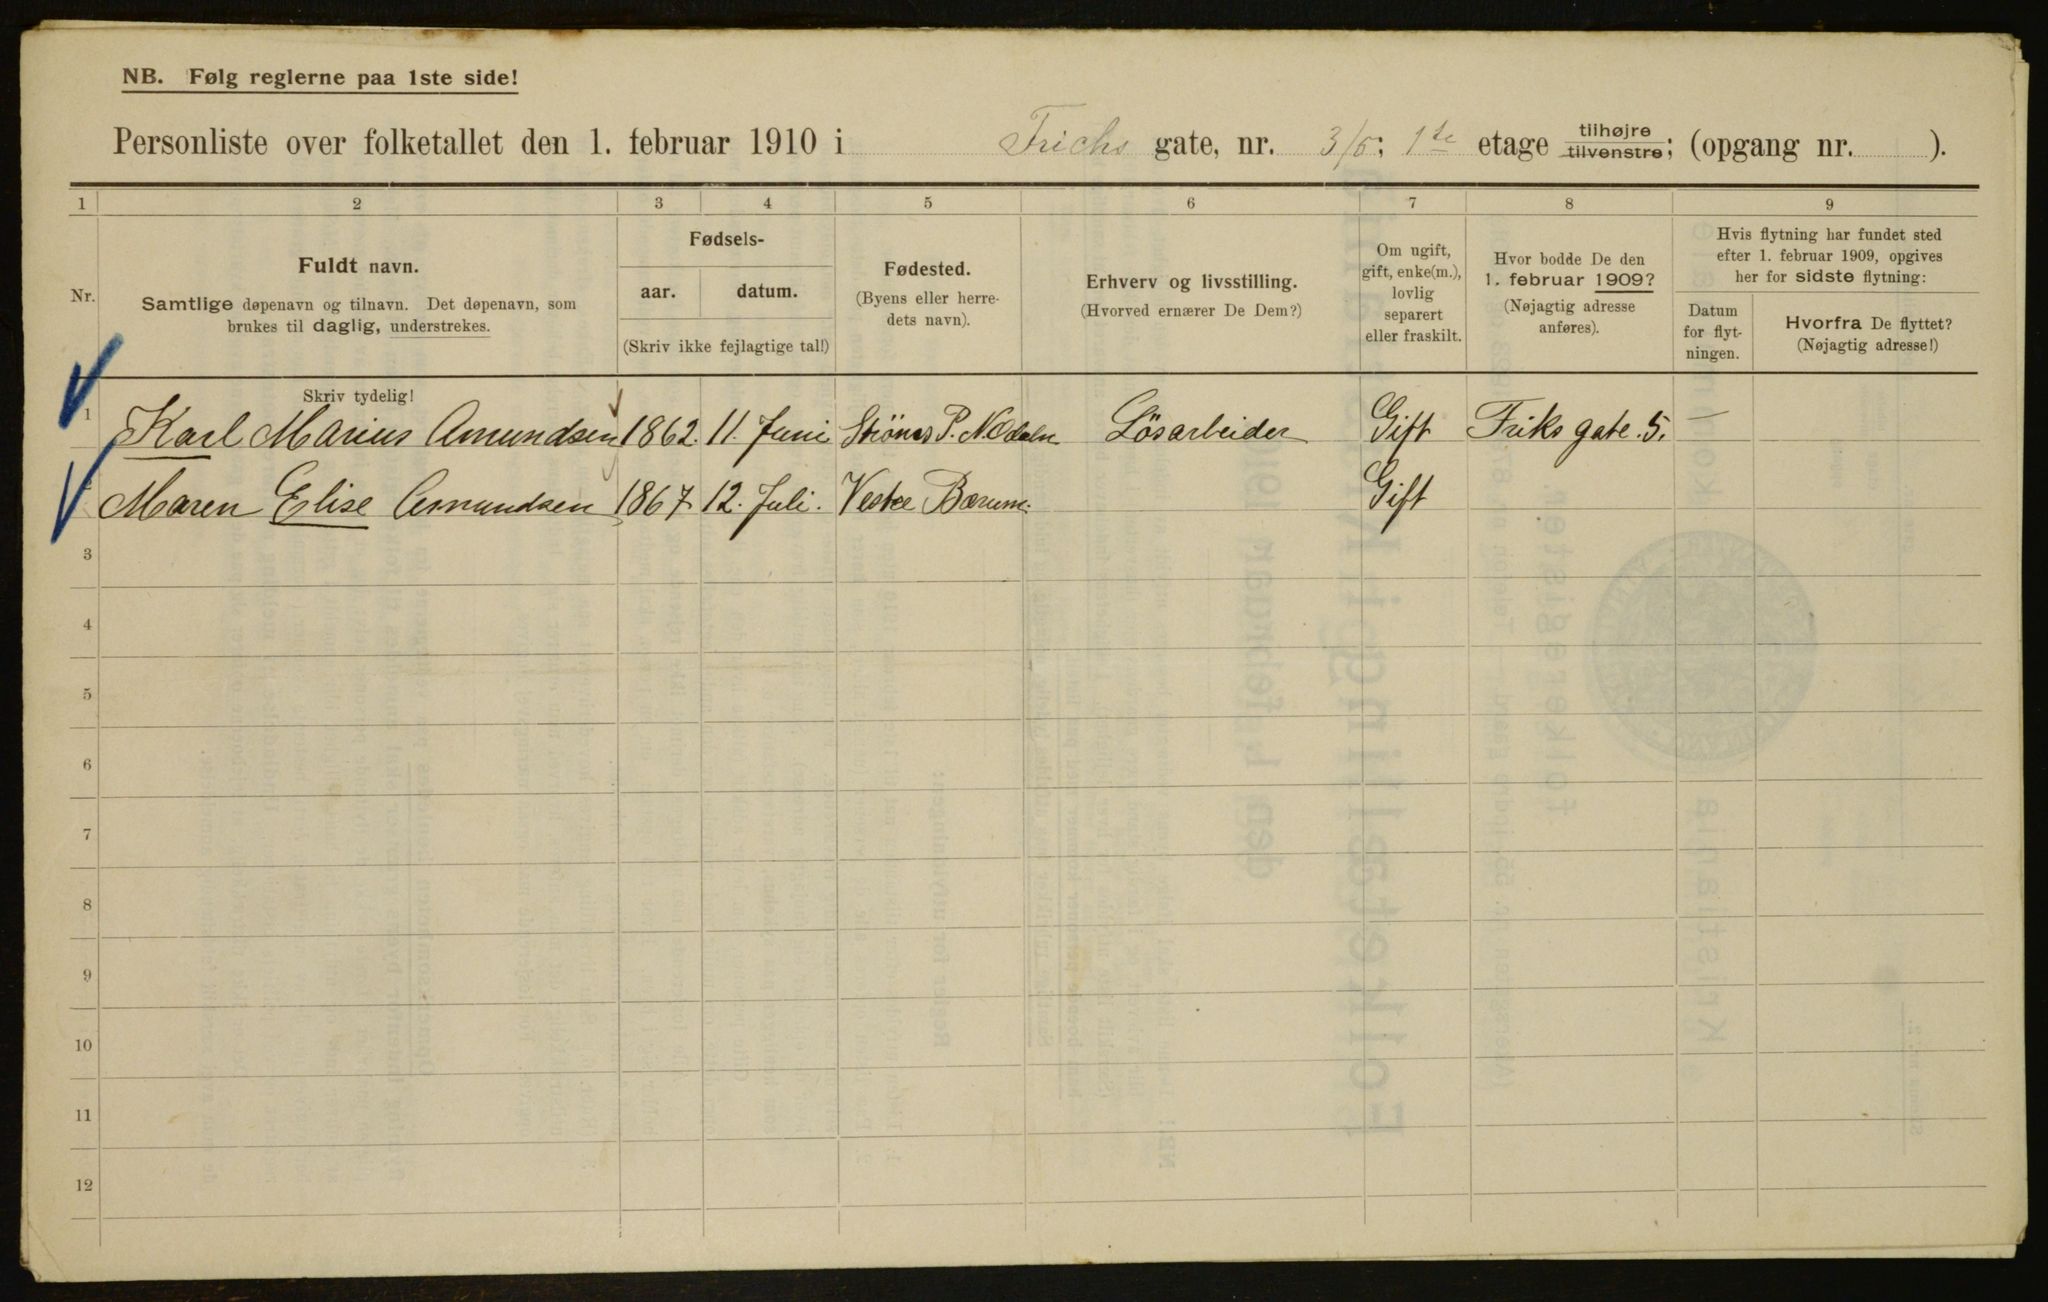 NB. Følg reglerne paa 1ste side!
Personliste over folketallet den 1. februar 1910 i Frichs gate, nr. 3/5; 1ste etage tilhøjre tilvenstre; (opgang nr. ).
1 2 3 4 5 6 7 8 9
Nr.
Fuldt navn.
Samtlige døpenavn og tilnavn. Det døpenavn, som
brukes til daglig, understrekes.
Fødsels-
aar. datum.
(Skriv ikke fejlagtige tal!)
Fødested.
(Byens eller herre-
dets navn).
Erhverv og livsstilling.
(Hvorved ernærer De Dem?)
Om ugift,
gift, enke(m.),
lovlig
separert
eller fraskilt.
Hvor bodde De den
1. februar 1909?
(Nøjagtig adresse
anføres).
Hvis flytning har fundet sted
efter 1. februar 1909, opgives
her for sidste flytning:
Datum
for flyt-
ningen.
Hvorfra De flyttet?
(Nøjagtig adresse!)
Skriv tydelig!
1 Karl Marius Amundsen 1862. 11. Juni Strönes P. N. Odalen Lösarbeider Gift Friks gate. 5. —
Maren Elise Amundsen 1867 12. Juli. Vestre Bærum. Gift
3
4
5
6
7
8
9
10
11
12